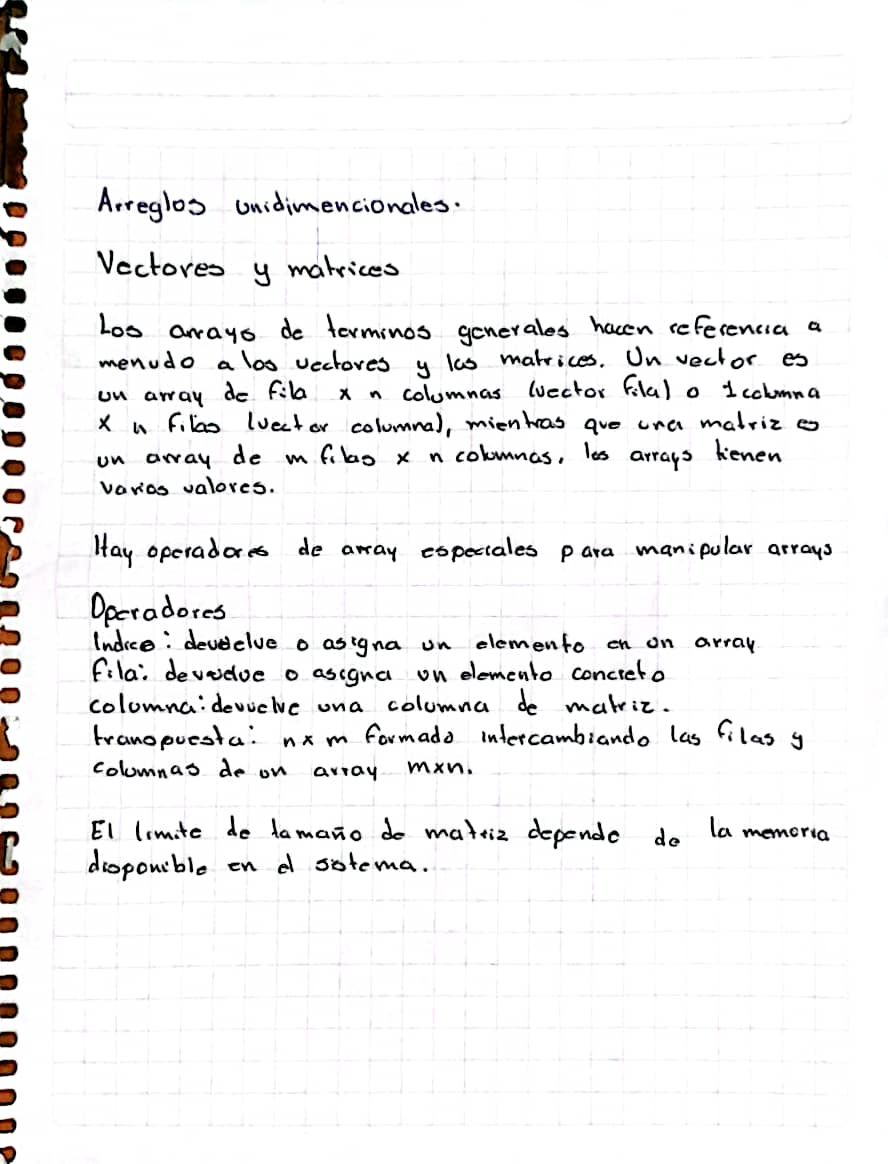 Arreglos unidimencionales.
Vectores y matrices
Los arrays de terminos generales hacen referencia a
menudo a los vectores y las matrices. Un vector es
un array de fila x n columnas (vector fila) o 1 columna
x n filas (vector columna), mientras que una matriz es
un array de m filas x n columnas. los arrays tienen
varios valores.
Hay operadores de array especiales para manipular arrays
Operadores
Indice: devuelve o asigna un elemento en un array
fila: devuelve o asigna un elemento concreto
columna: devuelve una columna de matriz.
transpuesta: n x m formado intercambiando las filas y
columnas de un array mxn.
El limite de tamaño de matriz depende de la memoria
disponible en el sistema.